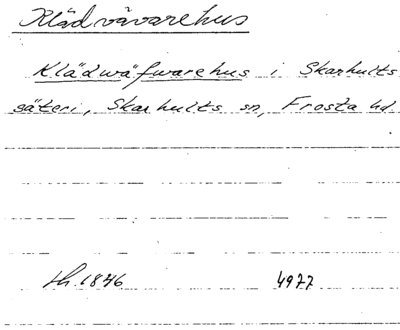 Klädvävarehus
Klädwäfwarehus i Skarhults
säteri, Skarhults sn, Frosta hd
lh. 1846 4977